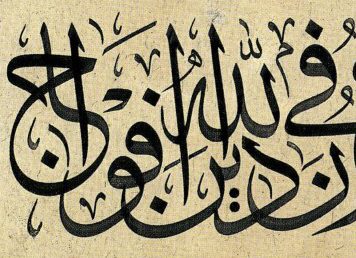 في دين الله افواجا